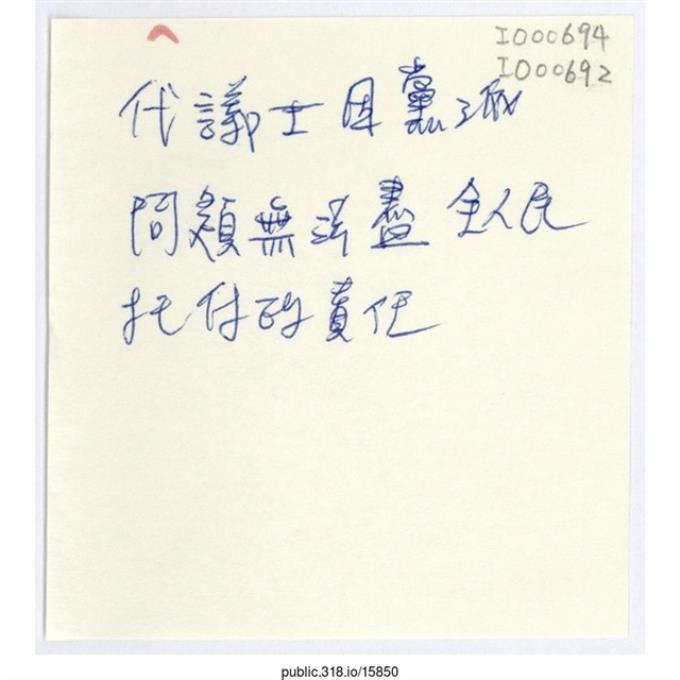 I000694
I000692
代議士因黨派
問題無法盡全人民
托付的責任
public.318.io/15850